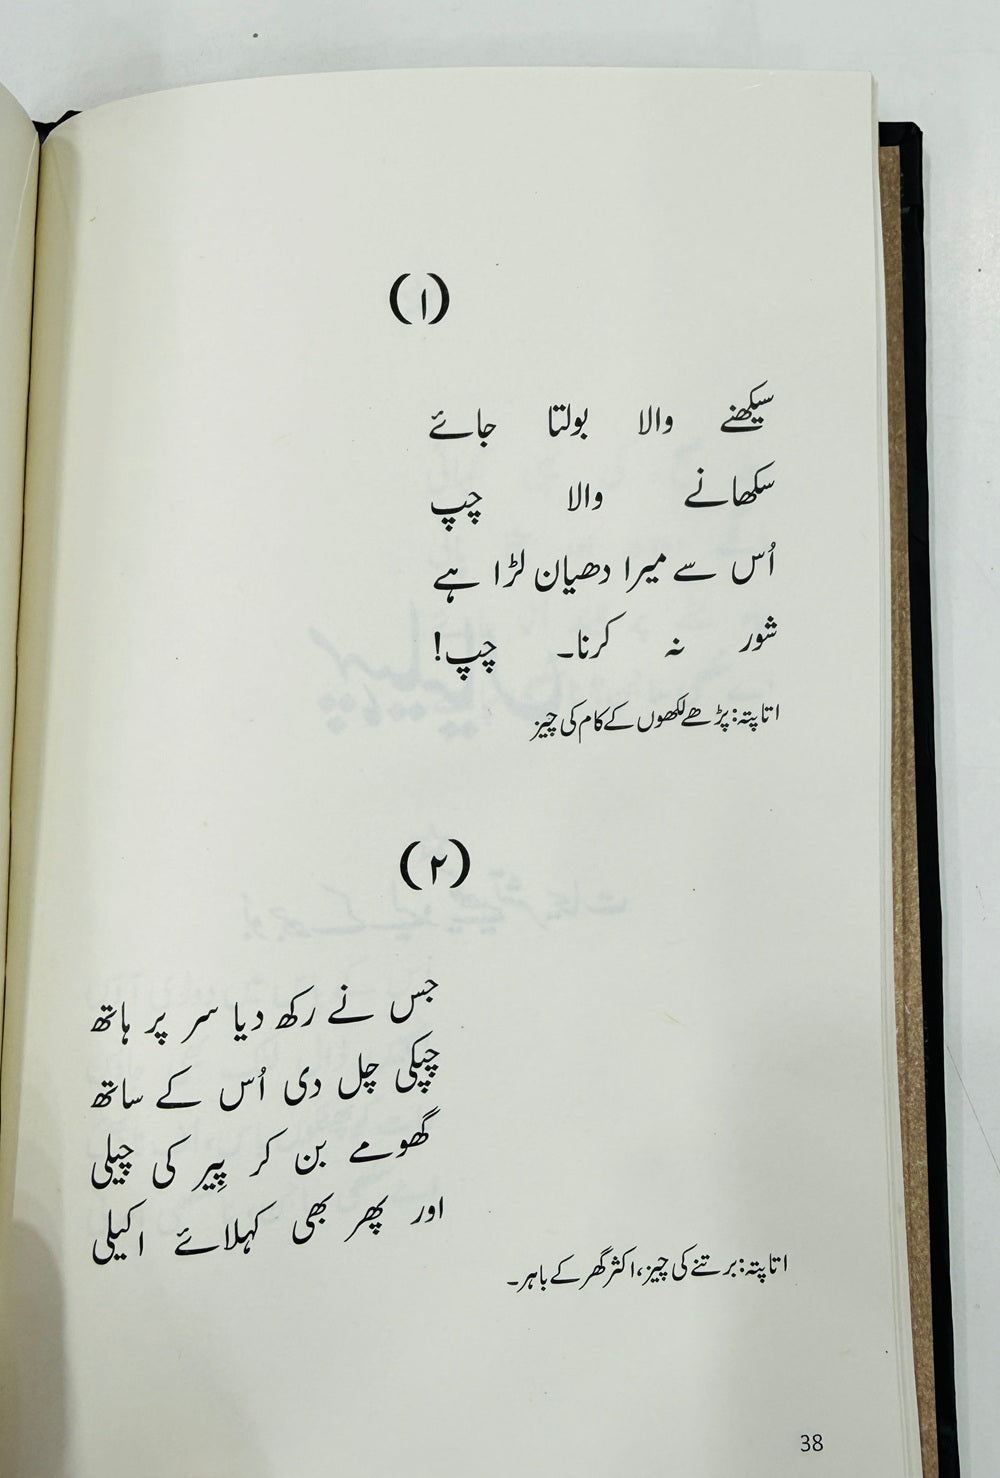 (۱)
سیکھنے والا بولتا جائے
سکھانے والا چپ
اُس سے میرا دھیان لڑا ہے
شور نہ کرنا۔ چپ!
اتا پتہ: پڑھے لکھوں کے کام کی چیز
(۲)
جس نے رکھ دیا سر پر ہاتھ
چپکی چل دی اُس کے ساتھ
گھومے بن کر پِیر کی چیلی
اور پھر بھی کہلائے اکیلی
اتا پتہ: برتنے کی چیز، اکثر گھر کے باہر۔
38